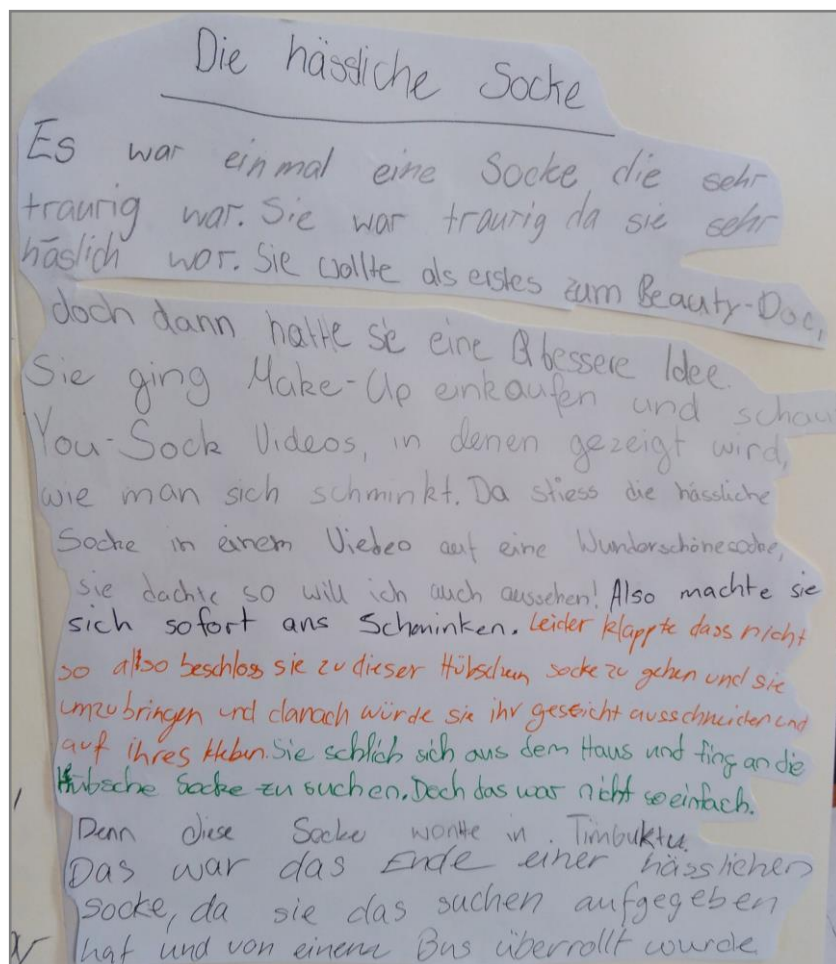 Die hässliche Socke
Es war einmal eine Socke die sehr
traurig war. Sie war traurig da sie sehr
häslich war. Sie wollte als erstes zum Beauty-Doc,
doch dann hatte sie eine bessere Idee.
Sie ging Make-Up einkaufen und schau
You-Sock Videos, in denen gezeigt wird,
wie man sich schminkt. Da stiess die hässliche
Socke in einem Viedeo auf eine Wunderschönesocke,
sie dachte so will ich auch aussehen! Also machte sie
sich sofort ans Schminken. Leider klappte dass nicht
so also beschloss sie zu dieser Hübschen socke zu gehen und sie
umzubringen und danach würde sie ihr gesicht ausschneiden und
auf ihres kleben. Sie schlich sich aus dem Haus und fing an die
Hübsche Socke zu suchen. Doch das war nicht so einfach.
Denn diese Socke wonte in Timbuktu.
Das war das Ende einer hässlichen
Socke, da sie das suchen aufgegeben
hat und von einem Bus überrollt wurde